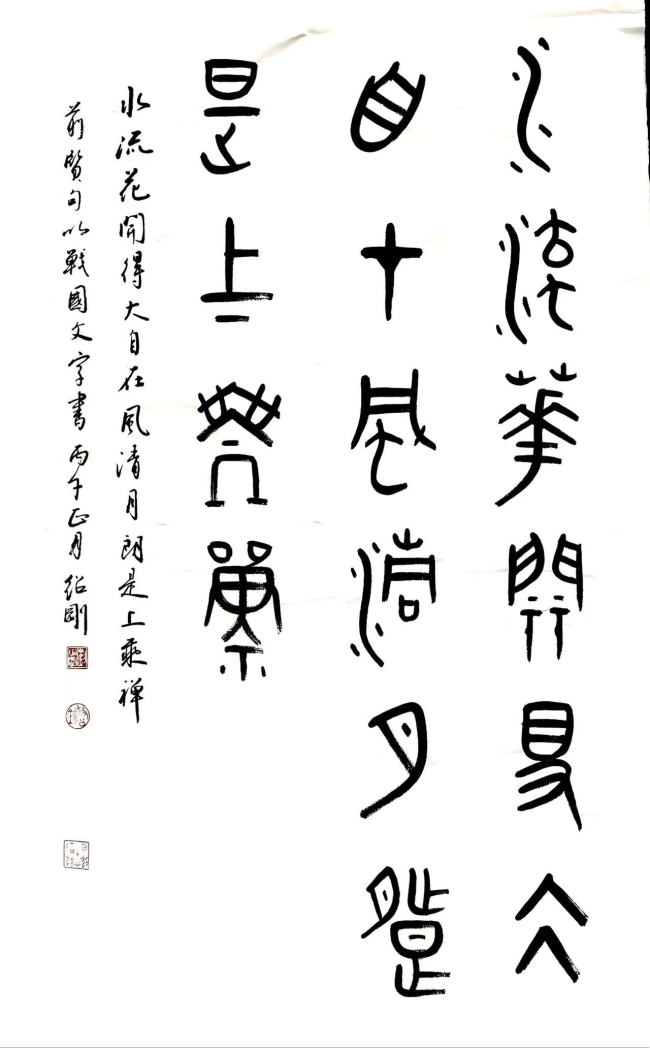 水流華開得大
自在風清月朗
是上乘禪
水流花開得大自在風清月朗是上乘禪
前賢句以戰國文字書 丙午正月 紹剛